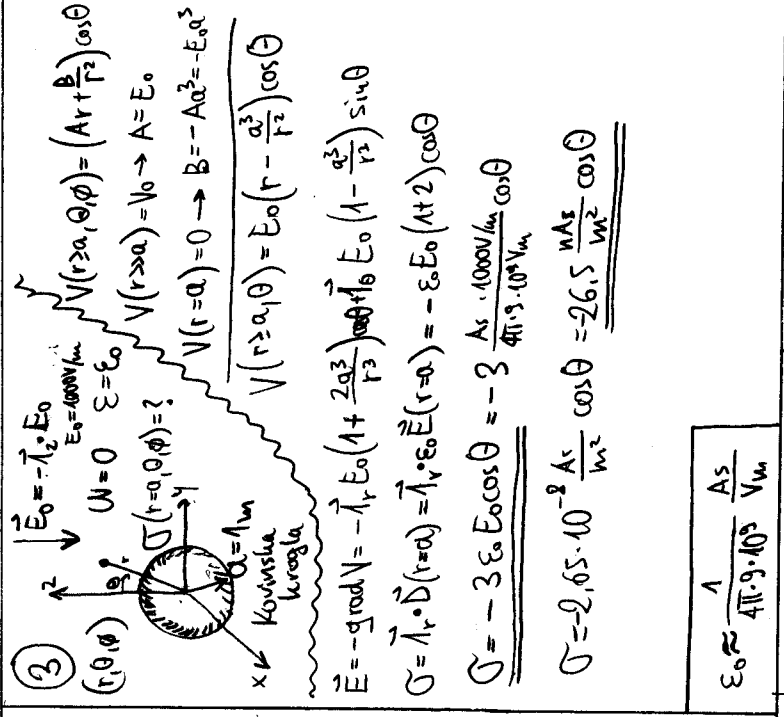 ③
(r,θ,φ)
z
θ
r
y
x
a=1m
Kovinska
krogla
E⃗₀=-1⃗z·E₀
E₀=1000V/m
ω=0 ε=ε₀
σ(r=a,θ,φ)=?
V(r≥a,θ,φ)=(Ar+B/r²)cosθ
V(r≫a)=V₀→A=E₀
V(r=a)=0→B=-Aa³=-E₀a³
V(r≥a,θ)=E₀(r-a³/r²)cosθ
E⃗=-grad V=-1⃗r E₀(1+2a³/r³)cosθ+1⃗θ E₀(1-a³/r²)sinθ
σ=1⃗r·D⃗(r=a)=1⃗r·ε₀E⃗(r=a)=-ε₀E₀(1+2)cosθ
σ=-3ε₀E₀cosθ=-3 As·1000V/m / 4π·9·10⁹Vm cosθ
σ=-2,65·10⁻⁸ As/m² cosθ=-26,5 nAs/m² cosθ
ε₀≈ 1/4π·9·10⁹ As/Vm